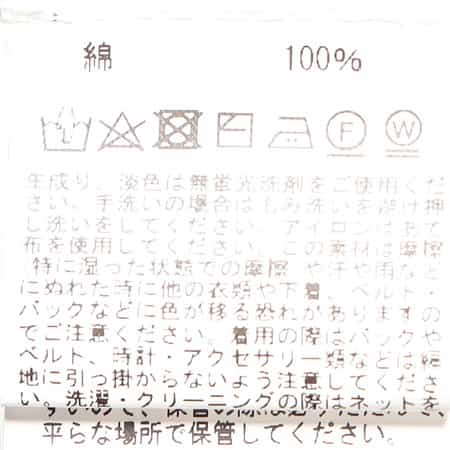 綿 100%
F W
生成り、淡色は無蛍光洗剤をご使用くだ
さい。手洗いの場合はもみ洗いを避け押
し洗いをしてください。アイロンはあて
布を使用してください。この素材は摩擦
(特に湿った状態での摩擦)や汗や雨など
にぬれた時に他の衣類や下着、ベルト・
バックなどに色が移る恐れがありますの
でご注意ください。着用の際はバックや
ベルト、時計・アクセサリー類などは編
地に引っ掛からないよう注意してくださ
い。洗濯・クリーニングの際はネットを、
平らな場所で保管してください。